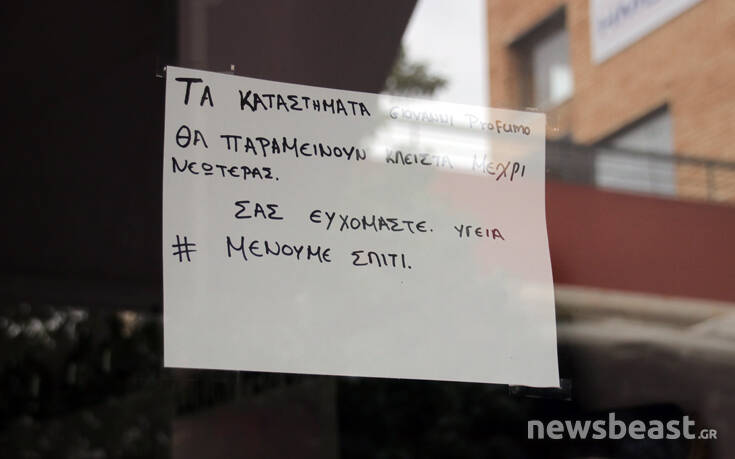 ΤΑ ΚΑΤΑΣΤΗΜΑΤΑ GIOVANNI PROFUMO
ΘΑ ΠΑΡΑΜΕΙΝΟΥΝ ΚΛΕΙΣΤΑ ΜΕΧΡΙ
ΝΕΩΤΕΡΑΣ.
ΣΑΣ ΕΥΧΟΜΑΣΤΕ. ΥΓΕΙΑ
# ΜΕΝΟΥΜΕ ΣΠΙΤΙ.
newsbeast.GR